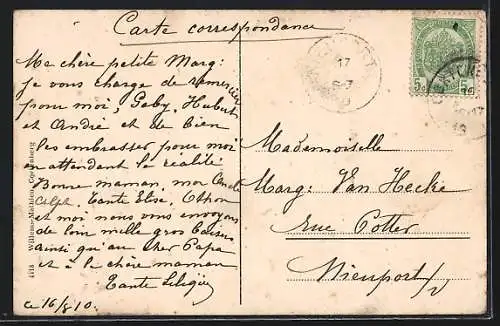 Carte correspondance
Ma chère petite Marg:
je vous charge de remercier
pour moi, Gaby, Hubert
et André et de bien
les embrasser pour moi
en attendant la réalité
Bonne maman, mon Oncle
Alph. Tante Elise, Othon
et moi nous vous envoyons
de loin mille gros baisers
ainsi qu'au cher Papa
et à la chère maman
Tante
ce 16/8 10.
Mademoiselle
Marg: Van Hecke
rue Potter
Nieuport/
4218 Willems-Mathieu,
17
8-7
5 5